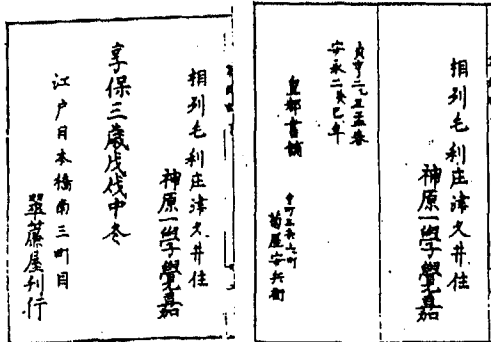 相刕毛利庄津久井住
神原一學覺嘉
貞享二乙丑孟春
安永二癸巳年
皇都書舗
菊屋安兵衛
相刕毛利庄津久井住
神原一學覺嘉
享保三歳戊戌中冬
江戸日本橋南三町目
翠簾屋刊行